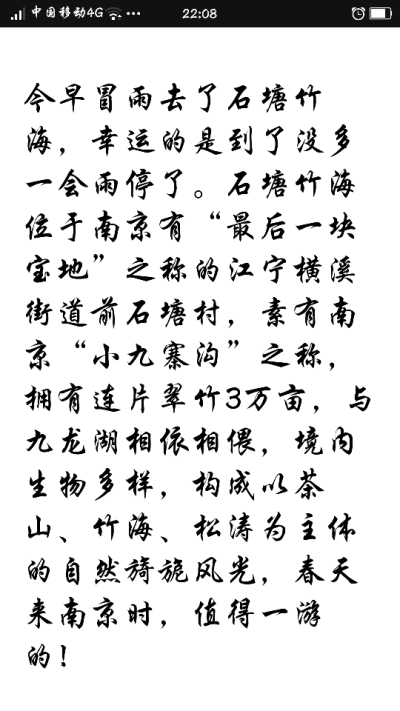 中国移动4G 22:08
今早冒雨去了石塘竹
海，幸运的是到了没多
一会雨停了。石塘竹海
位于南京有“最后一块
宝地”之称的江宁横溪
街道前石塘村，素有南
京“小九寨沟”之称，
拥有连片翠竹3万亩，与
九龙湖相依相偎，境内
生物多样，构成以茶
山、竹海、松涛为主体
的自然旖旎风光，春天
来南京时，值得一游
的！